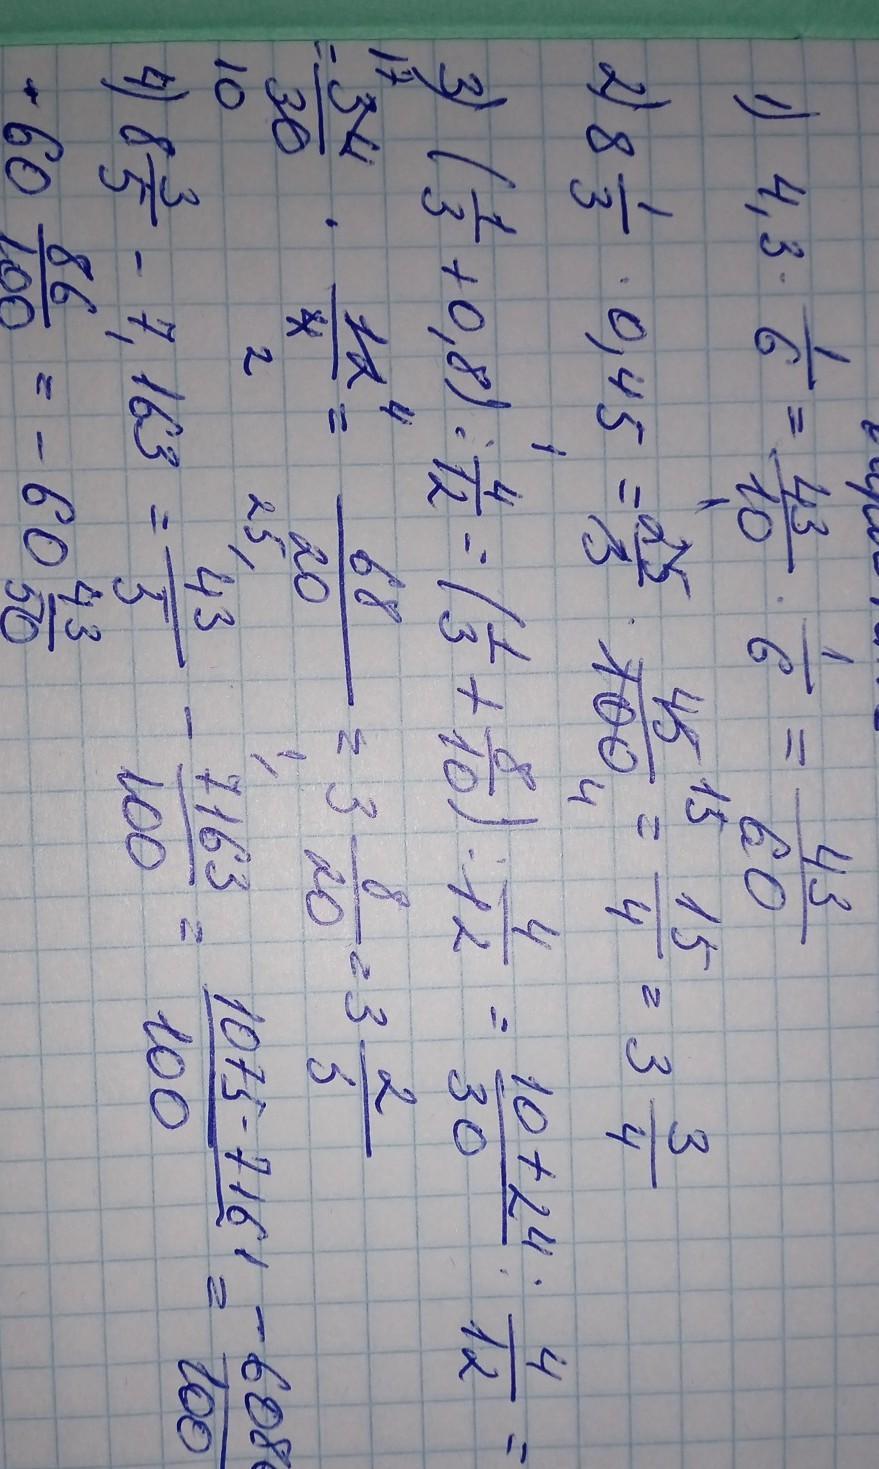 1) 4,3 · 1/6 = 43/10 · 1/6 = 43/60
2) 8 1/3 · 0,45 = 25/3 · 45/100 = 15/4 = 3 3/4
3) (1/3 + 0,8) : 4/12 = (1/3 + 8/10) : 4/12 = 10+24/30 : 4/12 =
= 34/30 · 12/4 = 68/20 = 3 8/20 = 3 2/5
4) 8 3/5 - 7,163 = 43/5 - 7163/100 = 1075-7161/100 = -608/100
60 86/100 = -60 43/50